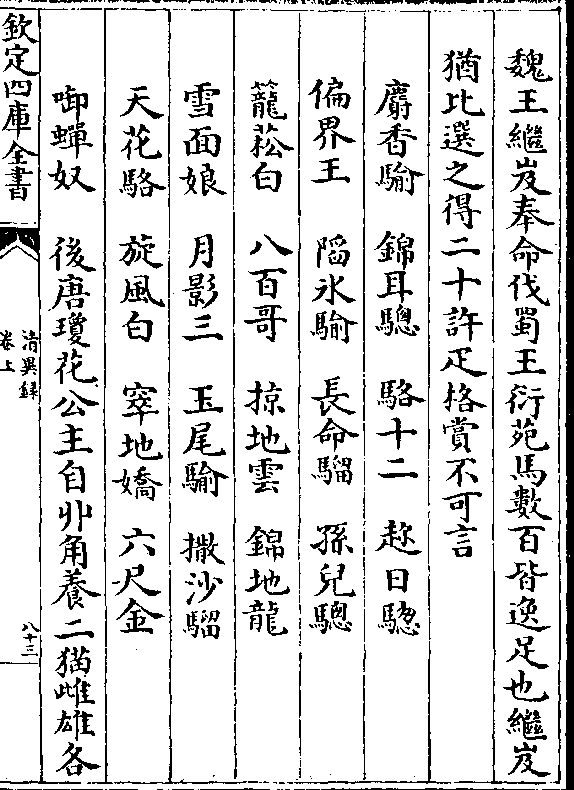 魏王繼岌奉命伐蜀王衍苑馬數百皆逸足也繼岌
猶比選之得二十許疋格賞不可言
麝香騟 錦耳驄 駱十二 趂日驄
偏界王 陷氷騟 長命騮 孫兒驄
籠菘白 八百哥 掠地雲 錦地龍
雪面娘 月影三 玉尾騟 撒沙騮
天花駱 旋風白 窣地嬌 六尺金
啣蟬奴 後唐瓊花公主自丱角養二猫雌雄各
欽定四庫全書
清異録
卷上
八十三